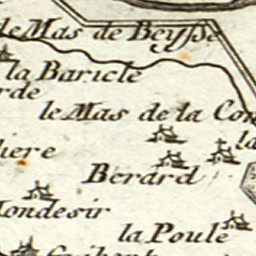 le Mas de Beysse
la Baricle
rde
le Mas de la Con
la
iere
Berard
ondesir
la Poule